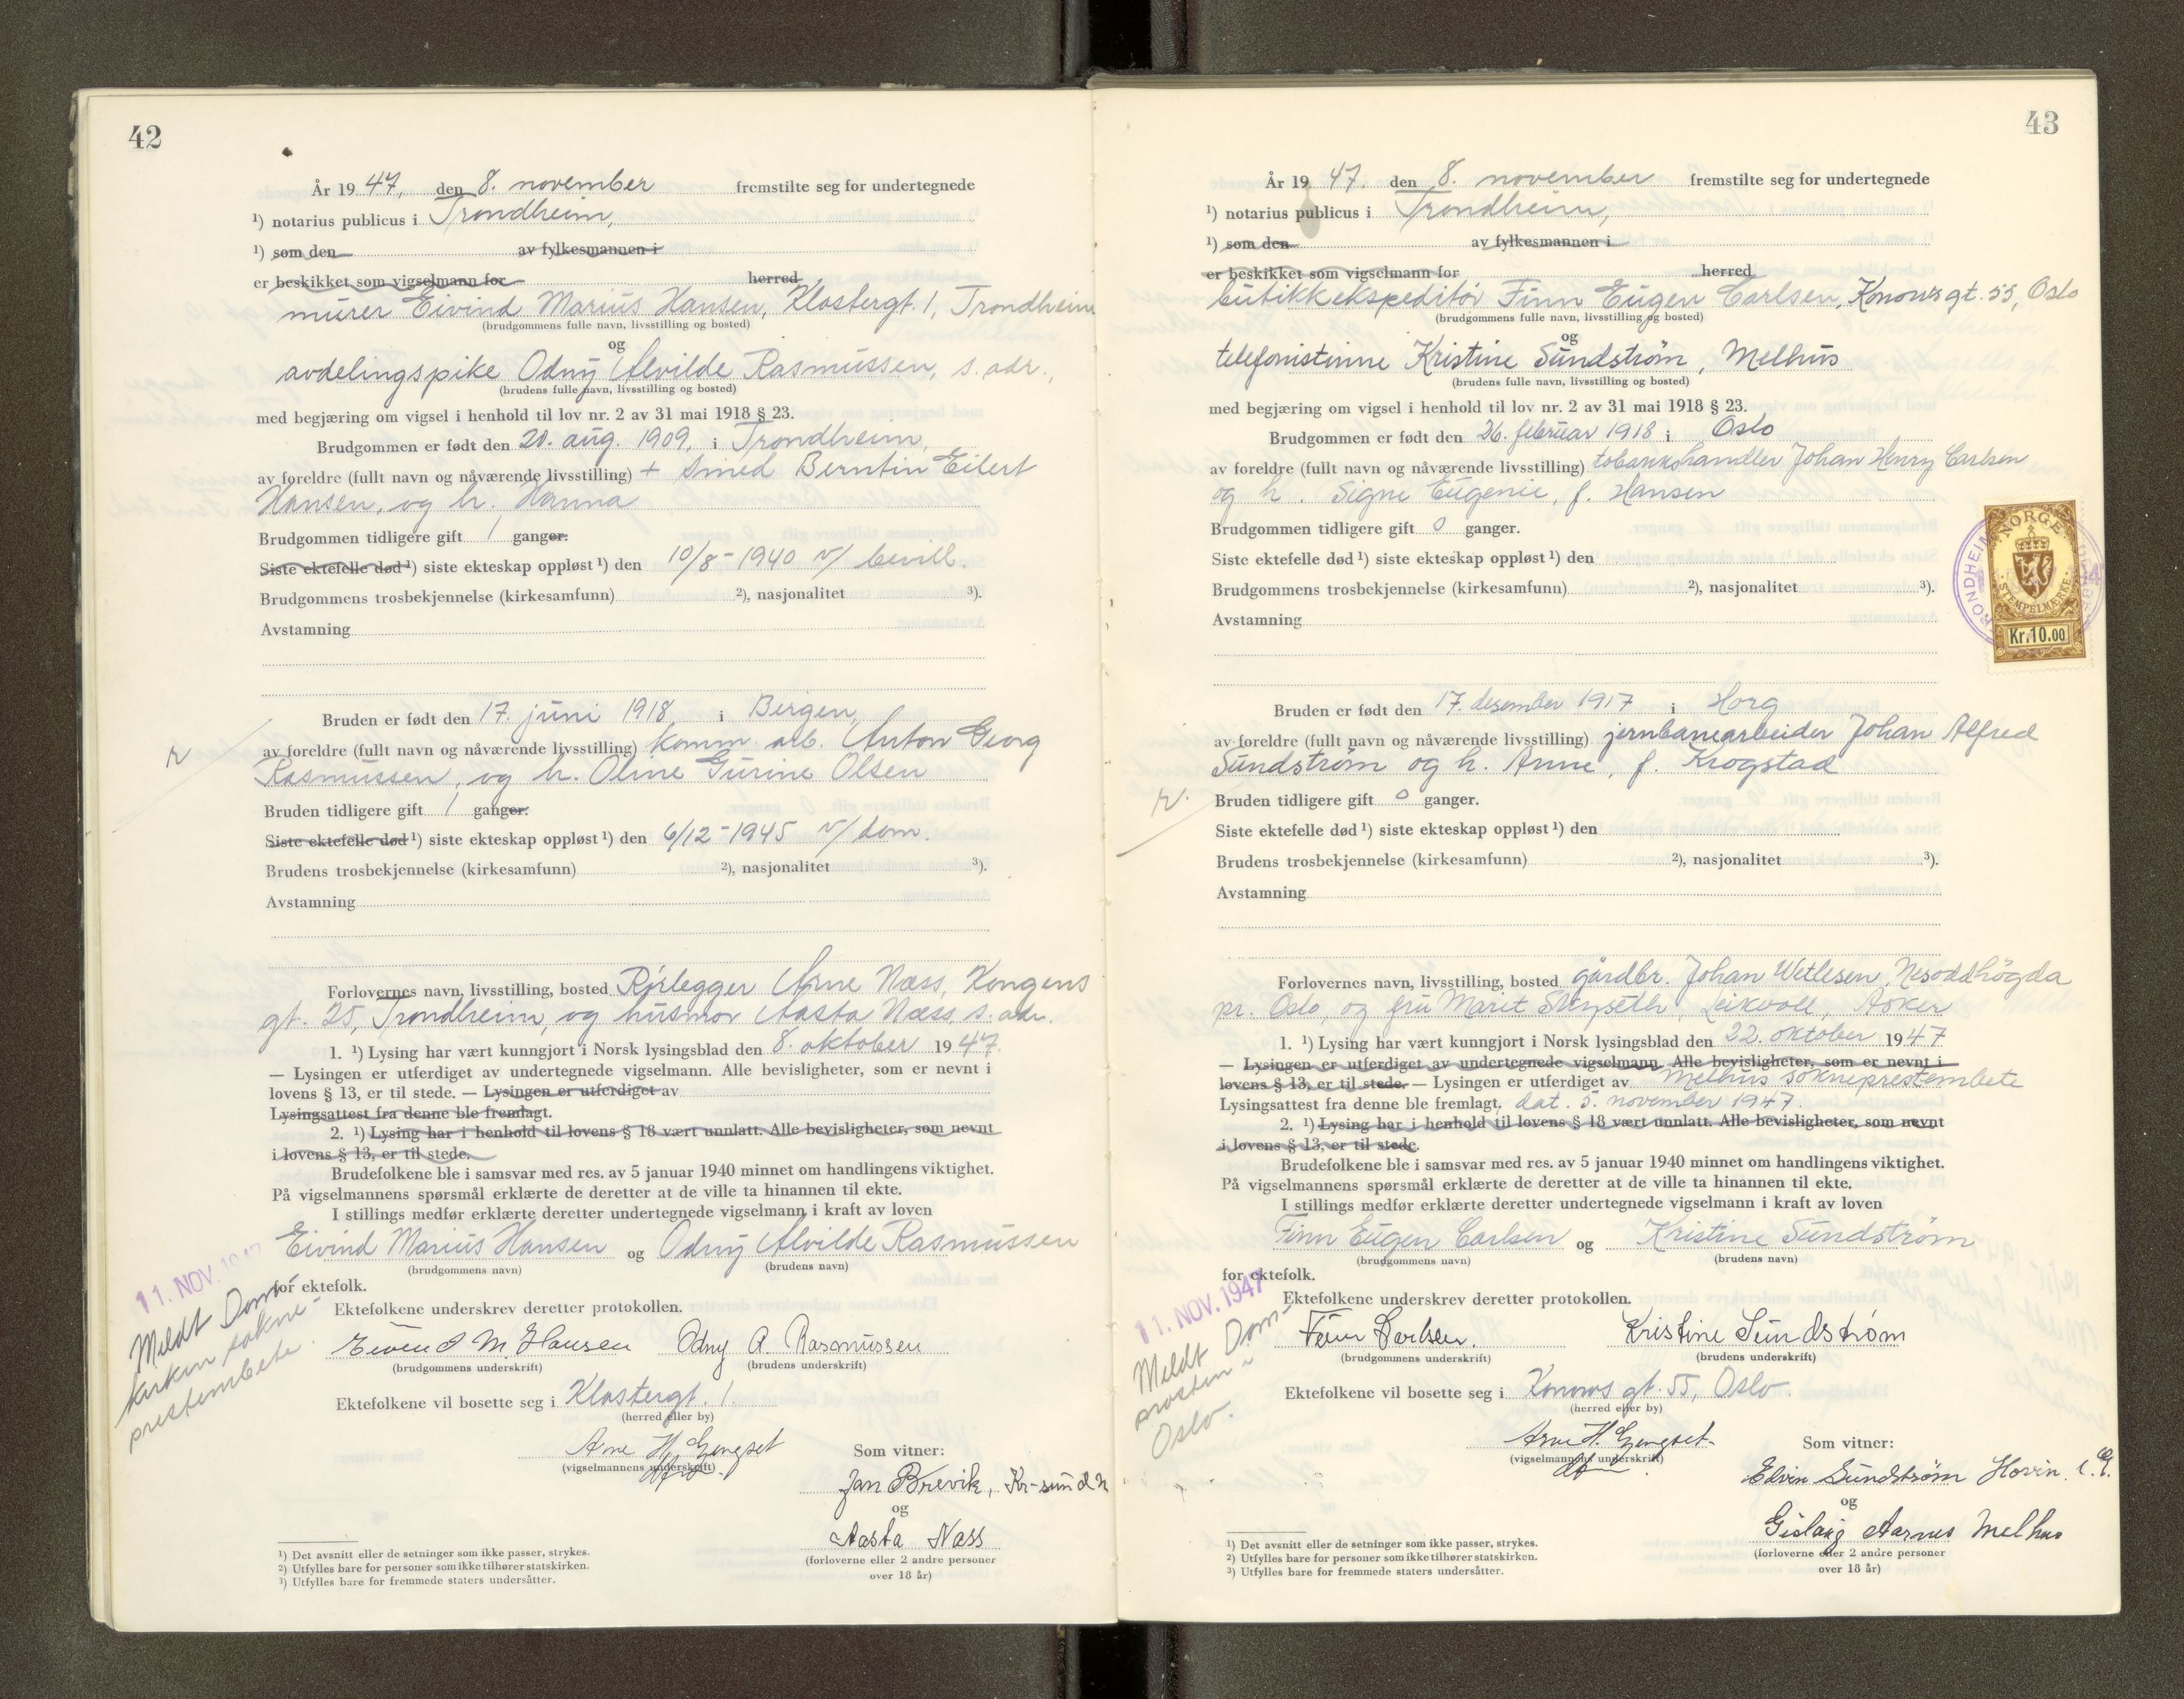 42
År 19 47, den 8. november fremstilte seg for undertegnede
¹) notarius publicus i Trondheim,
¹) som den av fylkesmannen i
er beskikket som vigselmann for herred
murer Eivind Marius Hansen, Klostergt. 1, Trondheim
(brudgommens fulle navn, livsstilling og bosted)
og
avdelingspike Odny Alvilde Rasmussen, s. adr.,
(brudens fulle navn, livsstilling og bosted)
med begjæring om vigsel i henhold til lov nr. 2 av 31 mai 1918 § 23.
Brudgommen er født den 20. aug. 1909, i Trondheim,
av foreldre (fullt navn og nåværende livsstilling) + smed Berntin Eilert
Hansen, og h. Hanna
Brudgommen tidligere gift 1 ganger.
Siste ektefelle død ¹) siste ekteskap oppløst ¹) den 10/8 - 1940 v/ bevill.
Brudgommens trosbekjennelse (kirkesamfunn) ²), nasjonalitet ³).
Avstamning
Bruden er født den 17. juni 1918, i Bergen,
av foreldre (fullt navn og nåværende livsstilling) komm arb. Anton Georg
Rasmussen, og h. Oline Gurine Olsen
r
Bruden tidligere gift 1 ganger.
Siste ektefelle død ¹) siste ekteskap oppløst ¹) den 6/12 - 1945 v/ dom.
Brudens trosbekjennelse (kirkesamfunn) ²), nasjonalitet ³).
Avstamning
Forlovernes navn, livsstilling, bosted Rørlegger Arne Næss, Kongens
gt. 25, Trondheim, og husmor Aasta Næss, s. adr.
1. ¹) Lysing har vært kunngjort i Norsk lysingsblad den 8. oktober 19 47.
— Lysingen er utferdiget av undertegnede vigselmann. Alle bevisligheter, som er nevnt i
lovens § 13, er til stede. — Lysingen er utferdiget av
Lysingsattest fra denne ble fremlagt.
2. ¹) Lysing har i henhold til lovens § 18 vært unnlatt. Alle bevisligheter, som nevnt
i lovens § 13, er til stede.
Brudefolkene ble i samsvar med res. av 5 januar 1940 minnet om handlingens viktighet.
På vigselmannens spørsmål erklærte de deretter at de ville ta hinannen til ekte.
I stillings medfør erklærte deretter undertegnede vigselmann i kraft av loven
Eivind Marius Hansen og Odny Alvilde Rasmussen
(brudgommens navn) (brudens navn)
for ektefolk.
11. NOV. 1947
Meldt Dom-
kirken sokne-
prestembete.
Ektefolkene underskrev deretter protokollen.
Eivind M. Hansen Odny A Rasmussen
(brudgommens underskrift) (brudens underskrift)
Ektefolkene vil bosette seg i Klostergt. 1.
(herred eller by)
Arne H. Gengset
(vigselmannens underskrift)
Som vitner:
Jan Brevik, Kr-sund N
og
Aasta Næss
(forloverne eller 2 andre personer
over 18 år)
¹) Det avsnitt eller de setninger som ikke passer, strykes.
²) Utfylles bare for personer som ikke tilhører statskirken.
³) Utfylles bare for fremmede staters undersåtter.
43
År 19 47. den 8. november fremstilte seg for undertegnede
¹) notarius publicus i Trondheim,
¹) som den av fylkesmannen i
er beskikket som vigselmann for herred
butikkekspeditør Finn Eugen Carlsen, Konows gt. 55, Oslo
(brudgommens fulle navn, livsstilling og bosted)
og
telefonistinne Kristine Sundstrøm, Melhus
(brudens fulle navn, livsstilling og bosted)
med begjæring om vigsel i henhold til lov nr. 2 av 31 mai 1918 § 23.
Brudgommen er født den 26. februar 1918 i Oslo
av foreldre (fullt navn og nåværende livsstilling) tobakkshandler Johan Henry Carlsen
og h. Signe Eugenie, f. Hansen
Brudgommen tidligere gift 0 ganger.
Siste ektefelle død ¹) siste ekteskap oppløst ¹) den
Brudgommens trosbekjennelse (kirkesamfunn) ²), nasjonalitet ³).
Avstamning
NORGE
STEMPELMERKE
Kr.10.00
TRONDHEIM
Bruden er født den 17. desember 1917 i Horg
av foreldre (fullt navn og nåværende livsstilling) jernbanearbeider Johan Alfred
Sundstrøm og h. Anne, f. Krogstad
r.
Bruden tidligere gift 0 ganger.
Siste ektefelle død ¹) siste ekteskap oppløst ¹) den
Brudens trosbekjennelse (kirkesamfunn) ²), nasjonalitet ³).
Avstamning
Forlovernes navn, livsstilling, bosted gårdbr. Johan Wetlesen, Nesoddhøgda
pr. Oslo, og fru Marit Leikvoll, Asker
1. ¹) Lysing har vært kunngjort i Norsk lysingsblad den 22. oktober 19 47
— Lysingen er utferdiget av undertegnede vigselmann. Alle bevisligheter, som er nevnt i
lovens § 13, er til stede. — Lysingen er utferdiget av Melhus sokneprestembete
Lysingsattest fra denne ble fremlagt, dat. 5. november 1947.
2. ¹) Lysing har i henhold til lovens § 18 vært unnlatt. Alle bevisligheter, som nevnt
i lovens § 13, er til stede.
Brudefolkene ble i samsvar med res. av 5 januar 1940 minnet om handlingens viktighet.
På vigselmannens spørsmål erklærte de deretter at de ville ta hinannen til ekte.
I stillings medfør erklærte deretter undertegnede vigselmann i kraft av loven
Finn Eugen Carlsen og Kristine Sundstrøm
(brudgommens navn) (brudens navn)
for ektefolk.
11. NOV. 1947
Meldt Dom-
prosten i
Oslo.
Ektefolkene underskrev deretter protokollen.
Finn Carlsen. Kristine Sundstrøm
(brudgommens underskrift) (brudens underskrift)
Ektefolkene vil bosette seg i Konows gt. 55, Oslo.
(herred eller by)
Arne H. Gengset
(vigselmannens underskrift)
Som vitner:
Edvin Sundstrøm Hovin
og
Gislaug Aarnes Melhus
(forloverne eller 2 andre personer
over 18 år)
¹) Det avsnitt eller de setninger som ikke passer, strykes.
²) Utfylles bare for personer som ikke tilhører statskirken.
³) Utfylles bare for fremmede staters undersåtter.